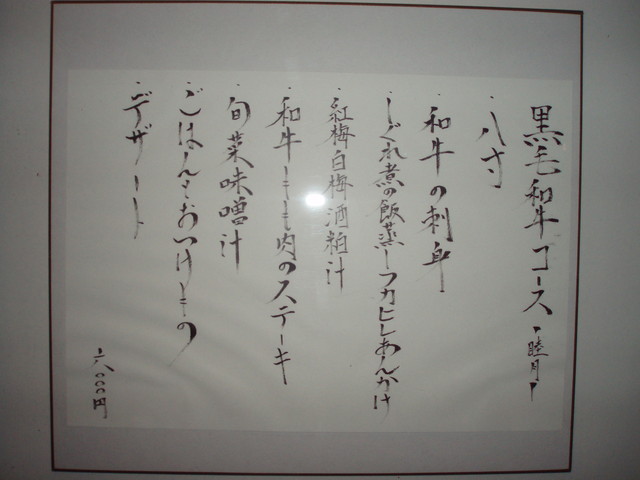 黒毛和牛コース 睦月
・八寸
・和牛の刺身
・しぐれ煮の飯蒸しフカヒレあんかけ
・紅梅白梅酒粕汁
・和牛もも肉のステーキ
・旬菜味噌汁
・ごはんとおつけもの
・デザート
六〇〇〇円